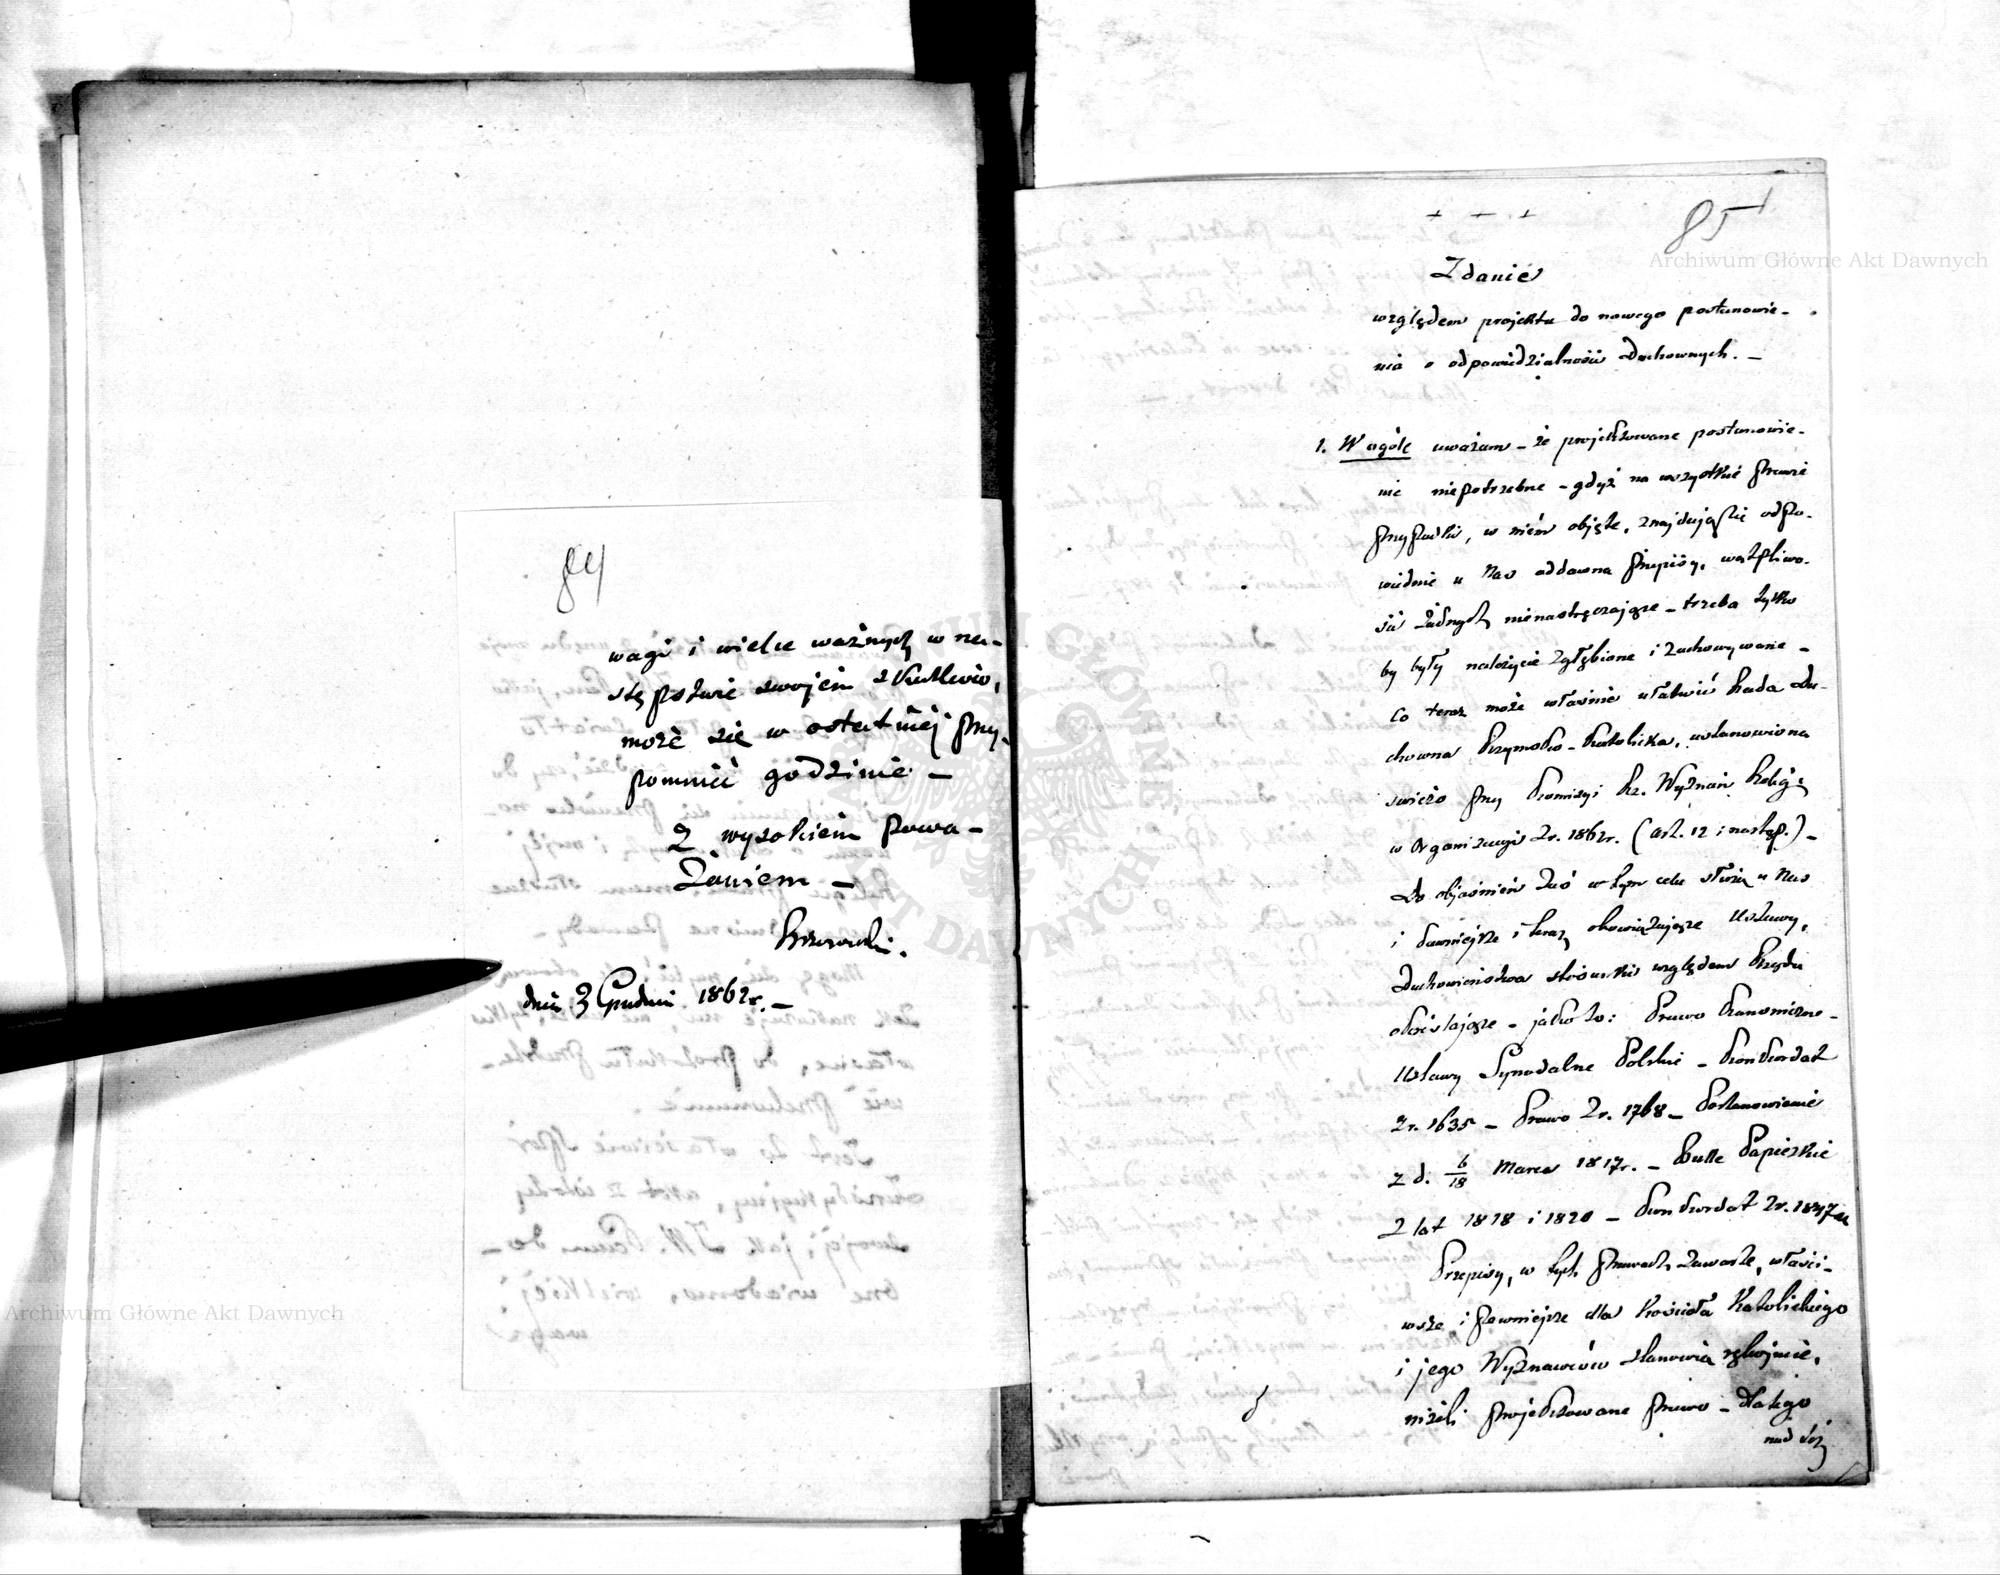 84
wagi i wielce ważnych w na-
stępstwie swojem skutków,
może się w ostatniej przy-
pomnieć godzinie –
Z wysokiem powa-
żaniem –
dnia 3 Grudnia 1862r. –
85
+ + +
Zdanie
względem projektu do nowego postanowie-
nia o odpowiedzialności Duchownych. –
1. W ogóle uważam – że projektowane postanowie-
nie niepotrzebne – gdyż na wszystkie prawie
przypadki, w niém objęte, znajdują się odpo-
wiednie u Nas oddawna przepisy, wątpliwo-
ści żadnych nienastręczające – trzeba tylko
by były należycie zgłębione i zachowywane –
co teraz może właśnie ułatwić Rada Du-
chowna Rzymsko-Katolicka, ustanowiona
świeżo przy Komisyi Rz. Wyznań Relig:
w Organizacyi z r. 1862r. (art. 12 i następ.) –
Do objaśnień zaś w tym celu służą u Nas
i dawniejsze i teraz obowiązujące Ustawy,
Duchowieństwa stosunki względem Rządu
określające – jakoto: Prawo Kanoniczne –
Ustawy Synodalne Polskie – Konkordat
z r. 1635 – Prawo z r. 1768 – Postanowienie
z d. 6/18 Marca 1817r. – Bulle Papieskie
z lat 1818 i 1820 – Konkordat z r. 1847
Przepisy, w tych prawach zawarte, właści-
wsze i pewniejsze dla Kościoła Katolickiego
i jego Wyznawców stanowią rękojmie,
niżeli projektowane prawo – dlatego
nad